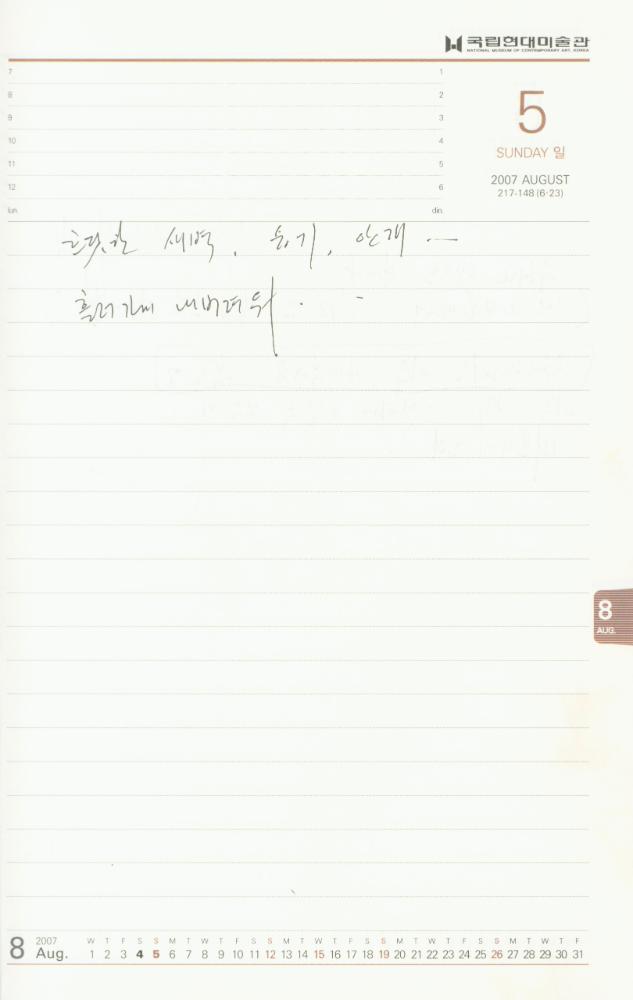 국립현대미술관
NATIONAL MUSEUM OF CONTEMPORARY ART, KOREA
7 1
8 2
9 3
10 4
11 5
12 6
lun. din.
5
SUNDAY 일
2007 AUGUST
217-148 (6·23)
새벽, 습기, 안개 —
흘러가게 내버려 둬.
8
AUG.
8 2007 Aug.
W T F S S M T W T F S S M T W T F S S M T W T F S S M T W T F
1 2 3 4 5 6 7 8 9 10 11 12 13 14 15 16 17 18 19 20 21 22 23 24 25 26 27 28 29 30 31